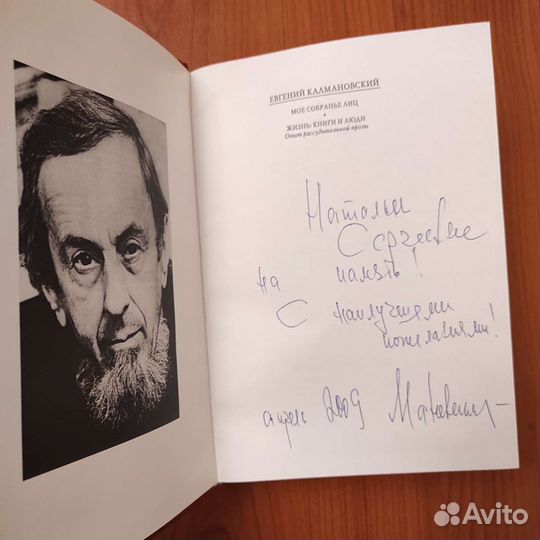 ЕВГЕНИЙ КАЛМАНОВСКИЙ
МОЕ СОБРАНЬЕ ЛИЦ
•
ЖИЗНЬ: КНИГИ И ЛЮДИ
Опыт рассудительной прозы
Натальи
Сергеевне
на память!
С наилучшими
пожеланиями!
апрель 2009
Avito